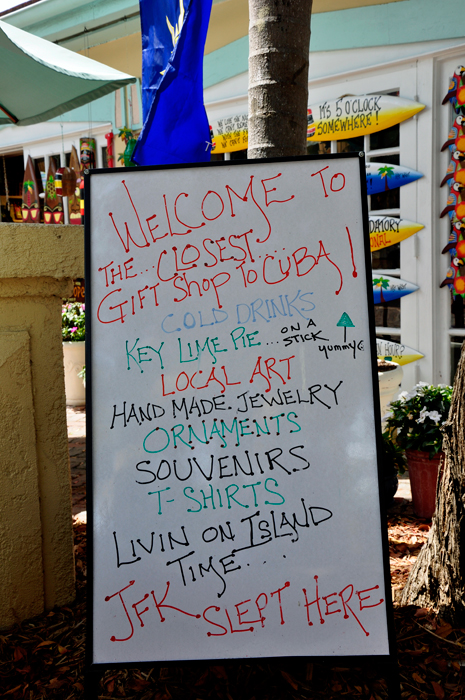 IT'S 5 O'CLOCK
SOMEWHERE!
WELCOME TO
THE...CLOSEST...
GIFT SHOP TO CUBA!
COLD DRINKS
KEY LIME PIE...ON A STICK
yummy
LOCAL ART
HAND MADE. JEWELRY
ORNAMENTS
SOUVENIRS
T-SHIRTS
LIVIN ON ISLAND
TIME...
JFK SLEPT HERE
HOUR?